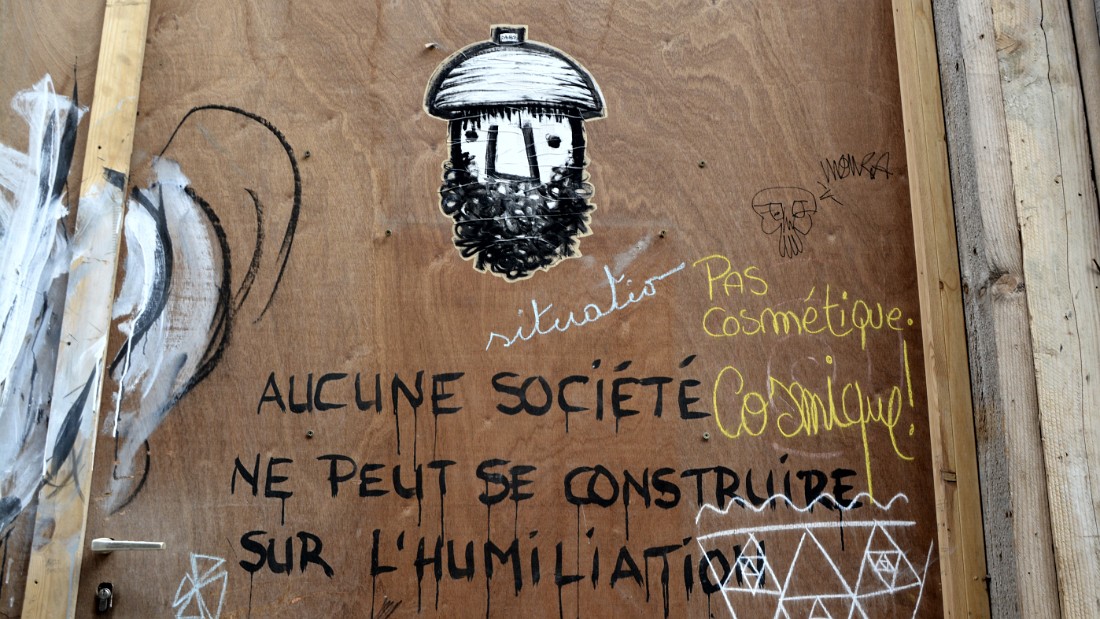 situatio
Pas
cosmétique.
Cosmique!
AUCUNE SOCIÉTÉ
NE PEUT SE CONSTRUIRE
SUR L'HUMILIATION